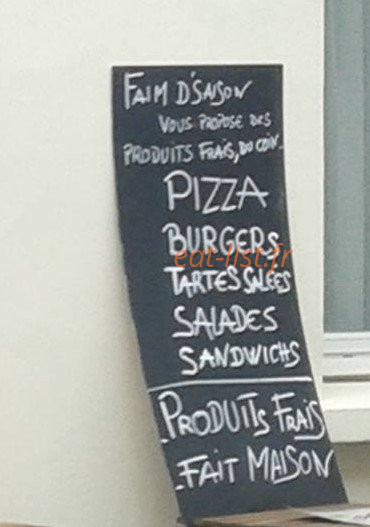 FAIM D'SAISON
VOUS PROPOSE DES
PRODUITS FRAIS, DU COIN.
PIZZA
BURGERS
eat-list.fr
TARTES SALÉES
SALADES
SANDWICHS
_PRODUITS FRAIS
_FAIT MAISON